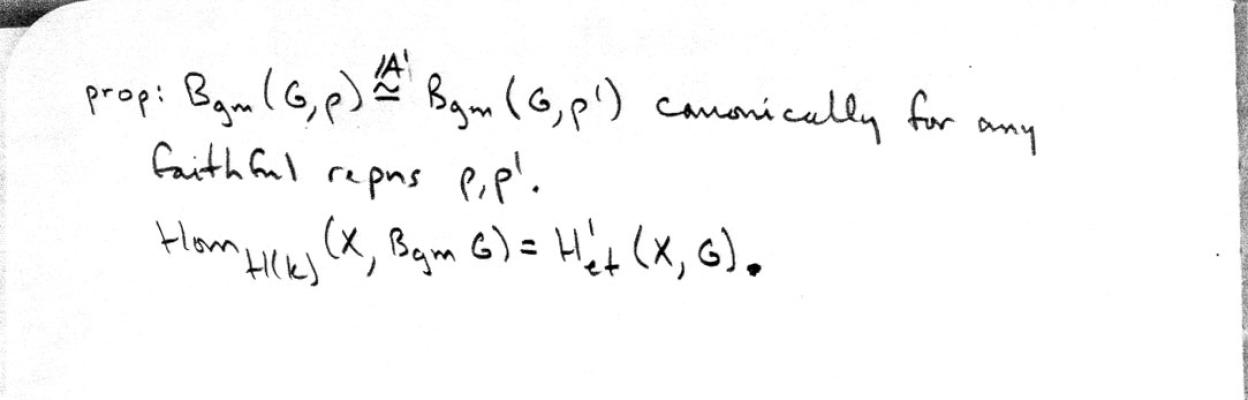 prop: B_gm (G,ρ) ≅^𝔸¹ B_gm (G,ρ') canonically for any
faithful repns ρ,ρ'.
Hom_H(k) (X, B_gm G) = H¹_et (X, G).